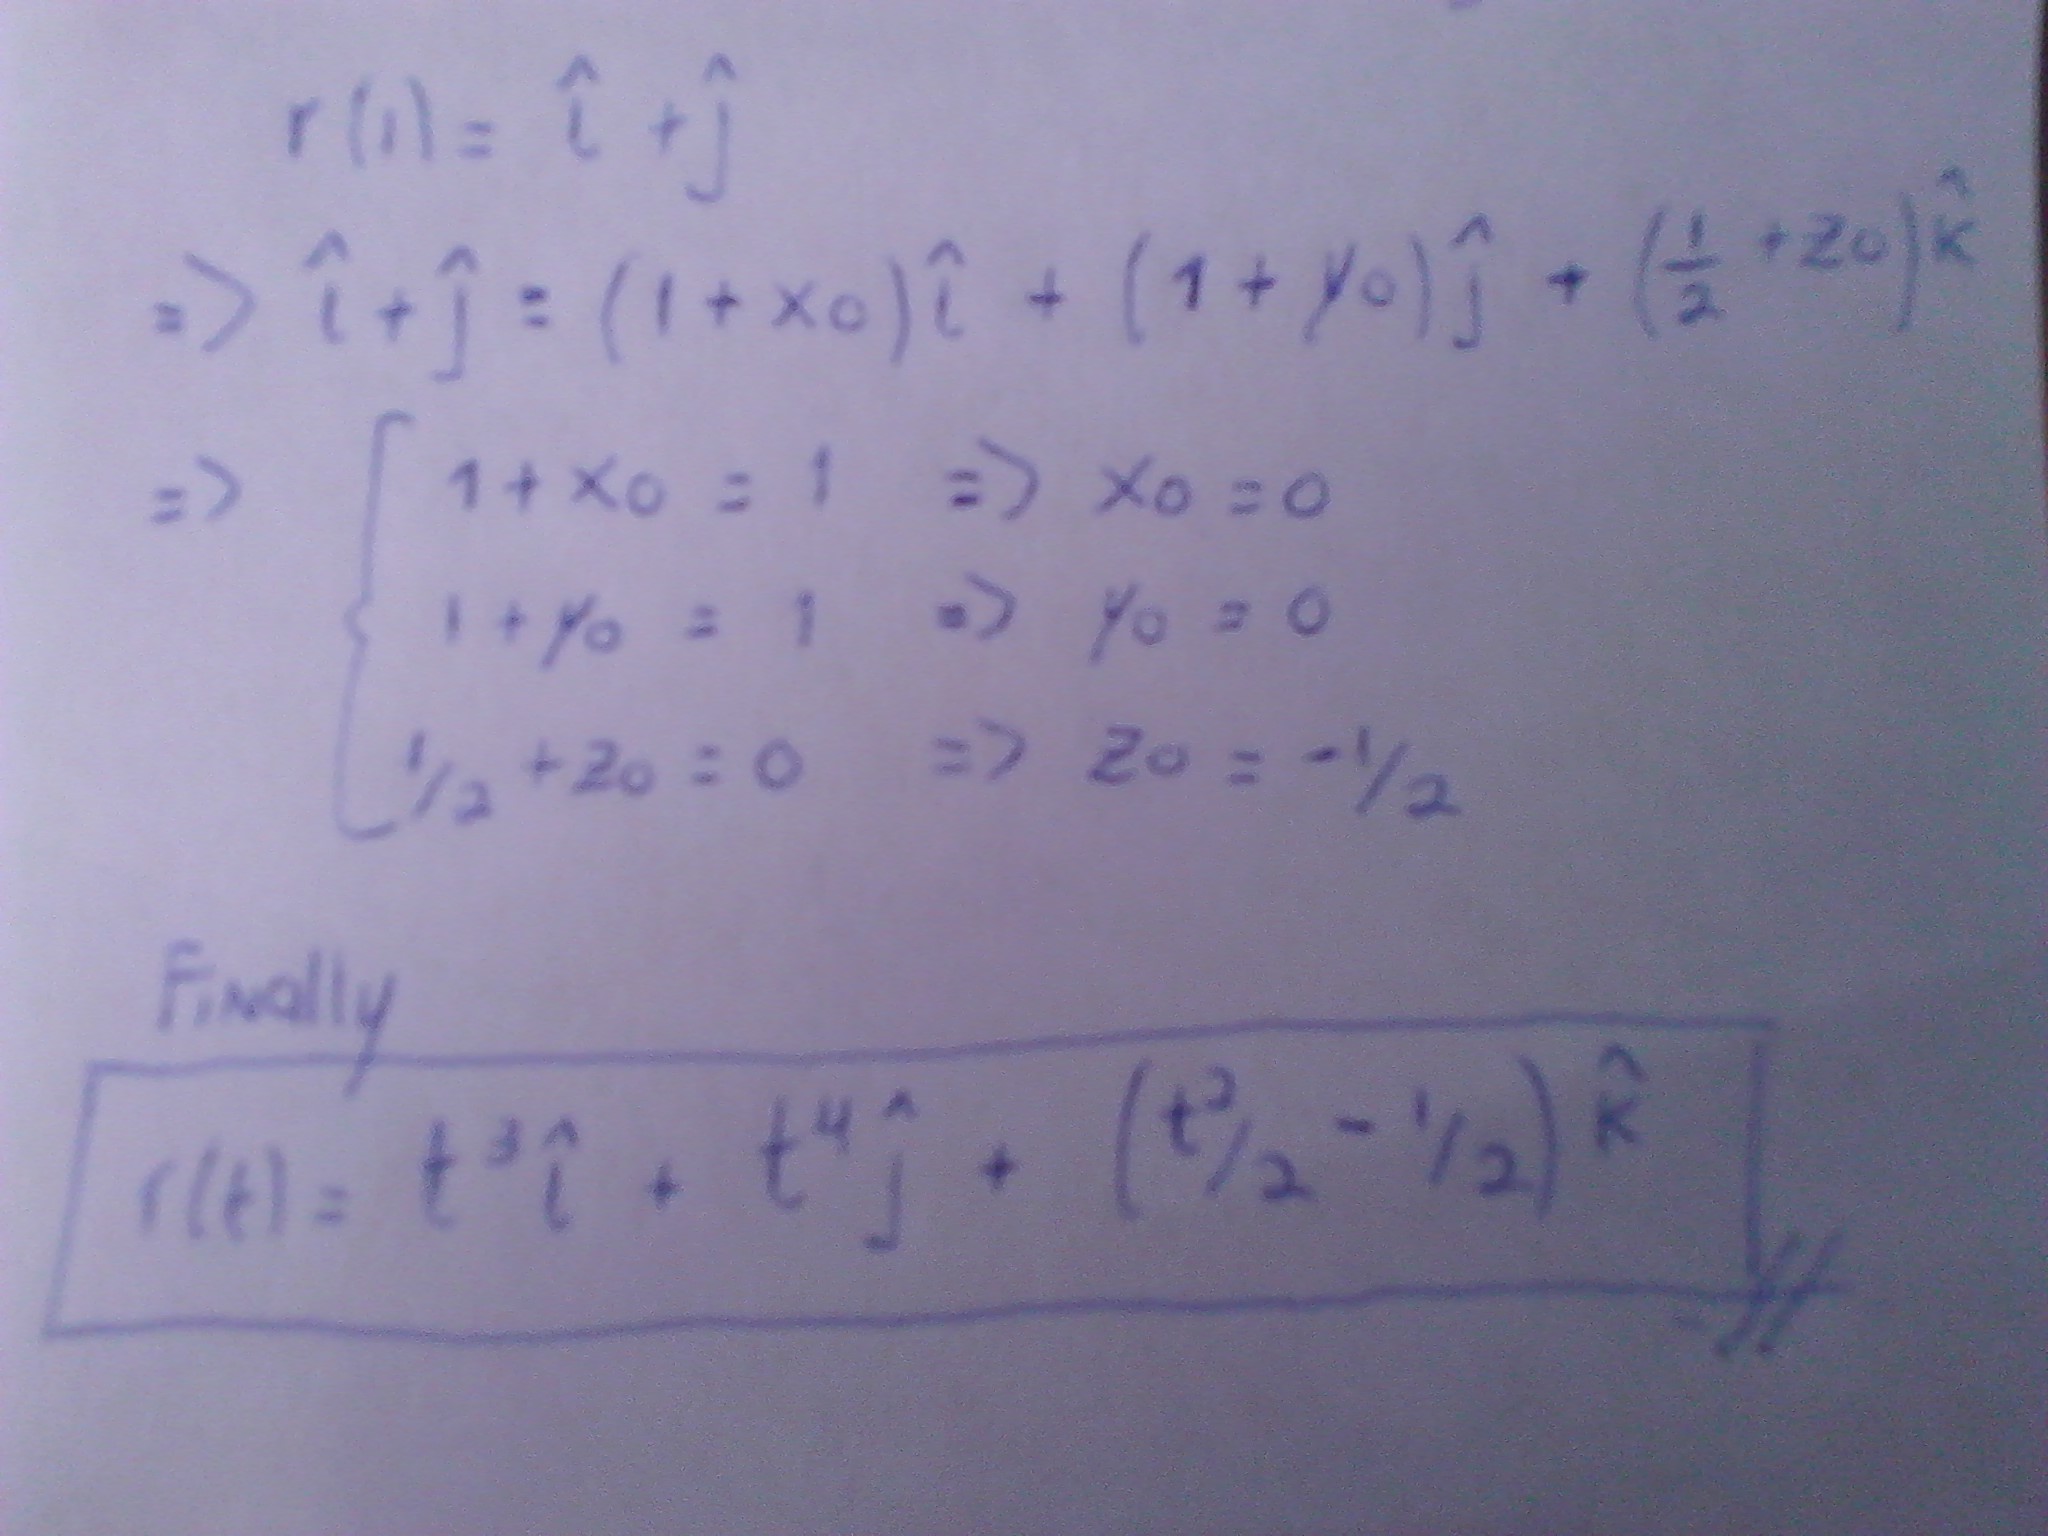 r(1) = î + ĵ
=> î + ĵ = (1 + x0)î + (1 + y0)ĵ + (1/2 + z0)k̂
=> { 1 + x0 = 1 => x0 = 0
1 + y0 = 1 => y0 = 0
1/2 + z0 = 0 => z0 = -1/2
Finally
r(t) = t³î + t⁴ĵ + (t²/2 - 1/2)k̂